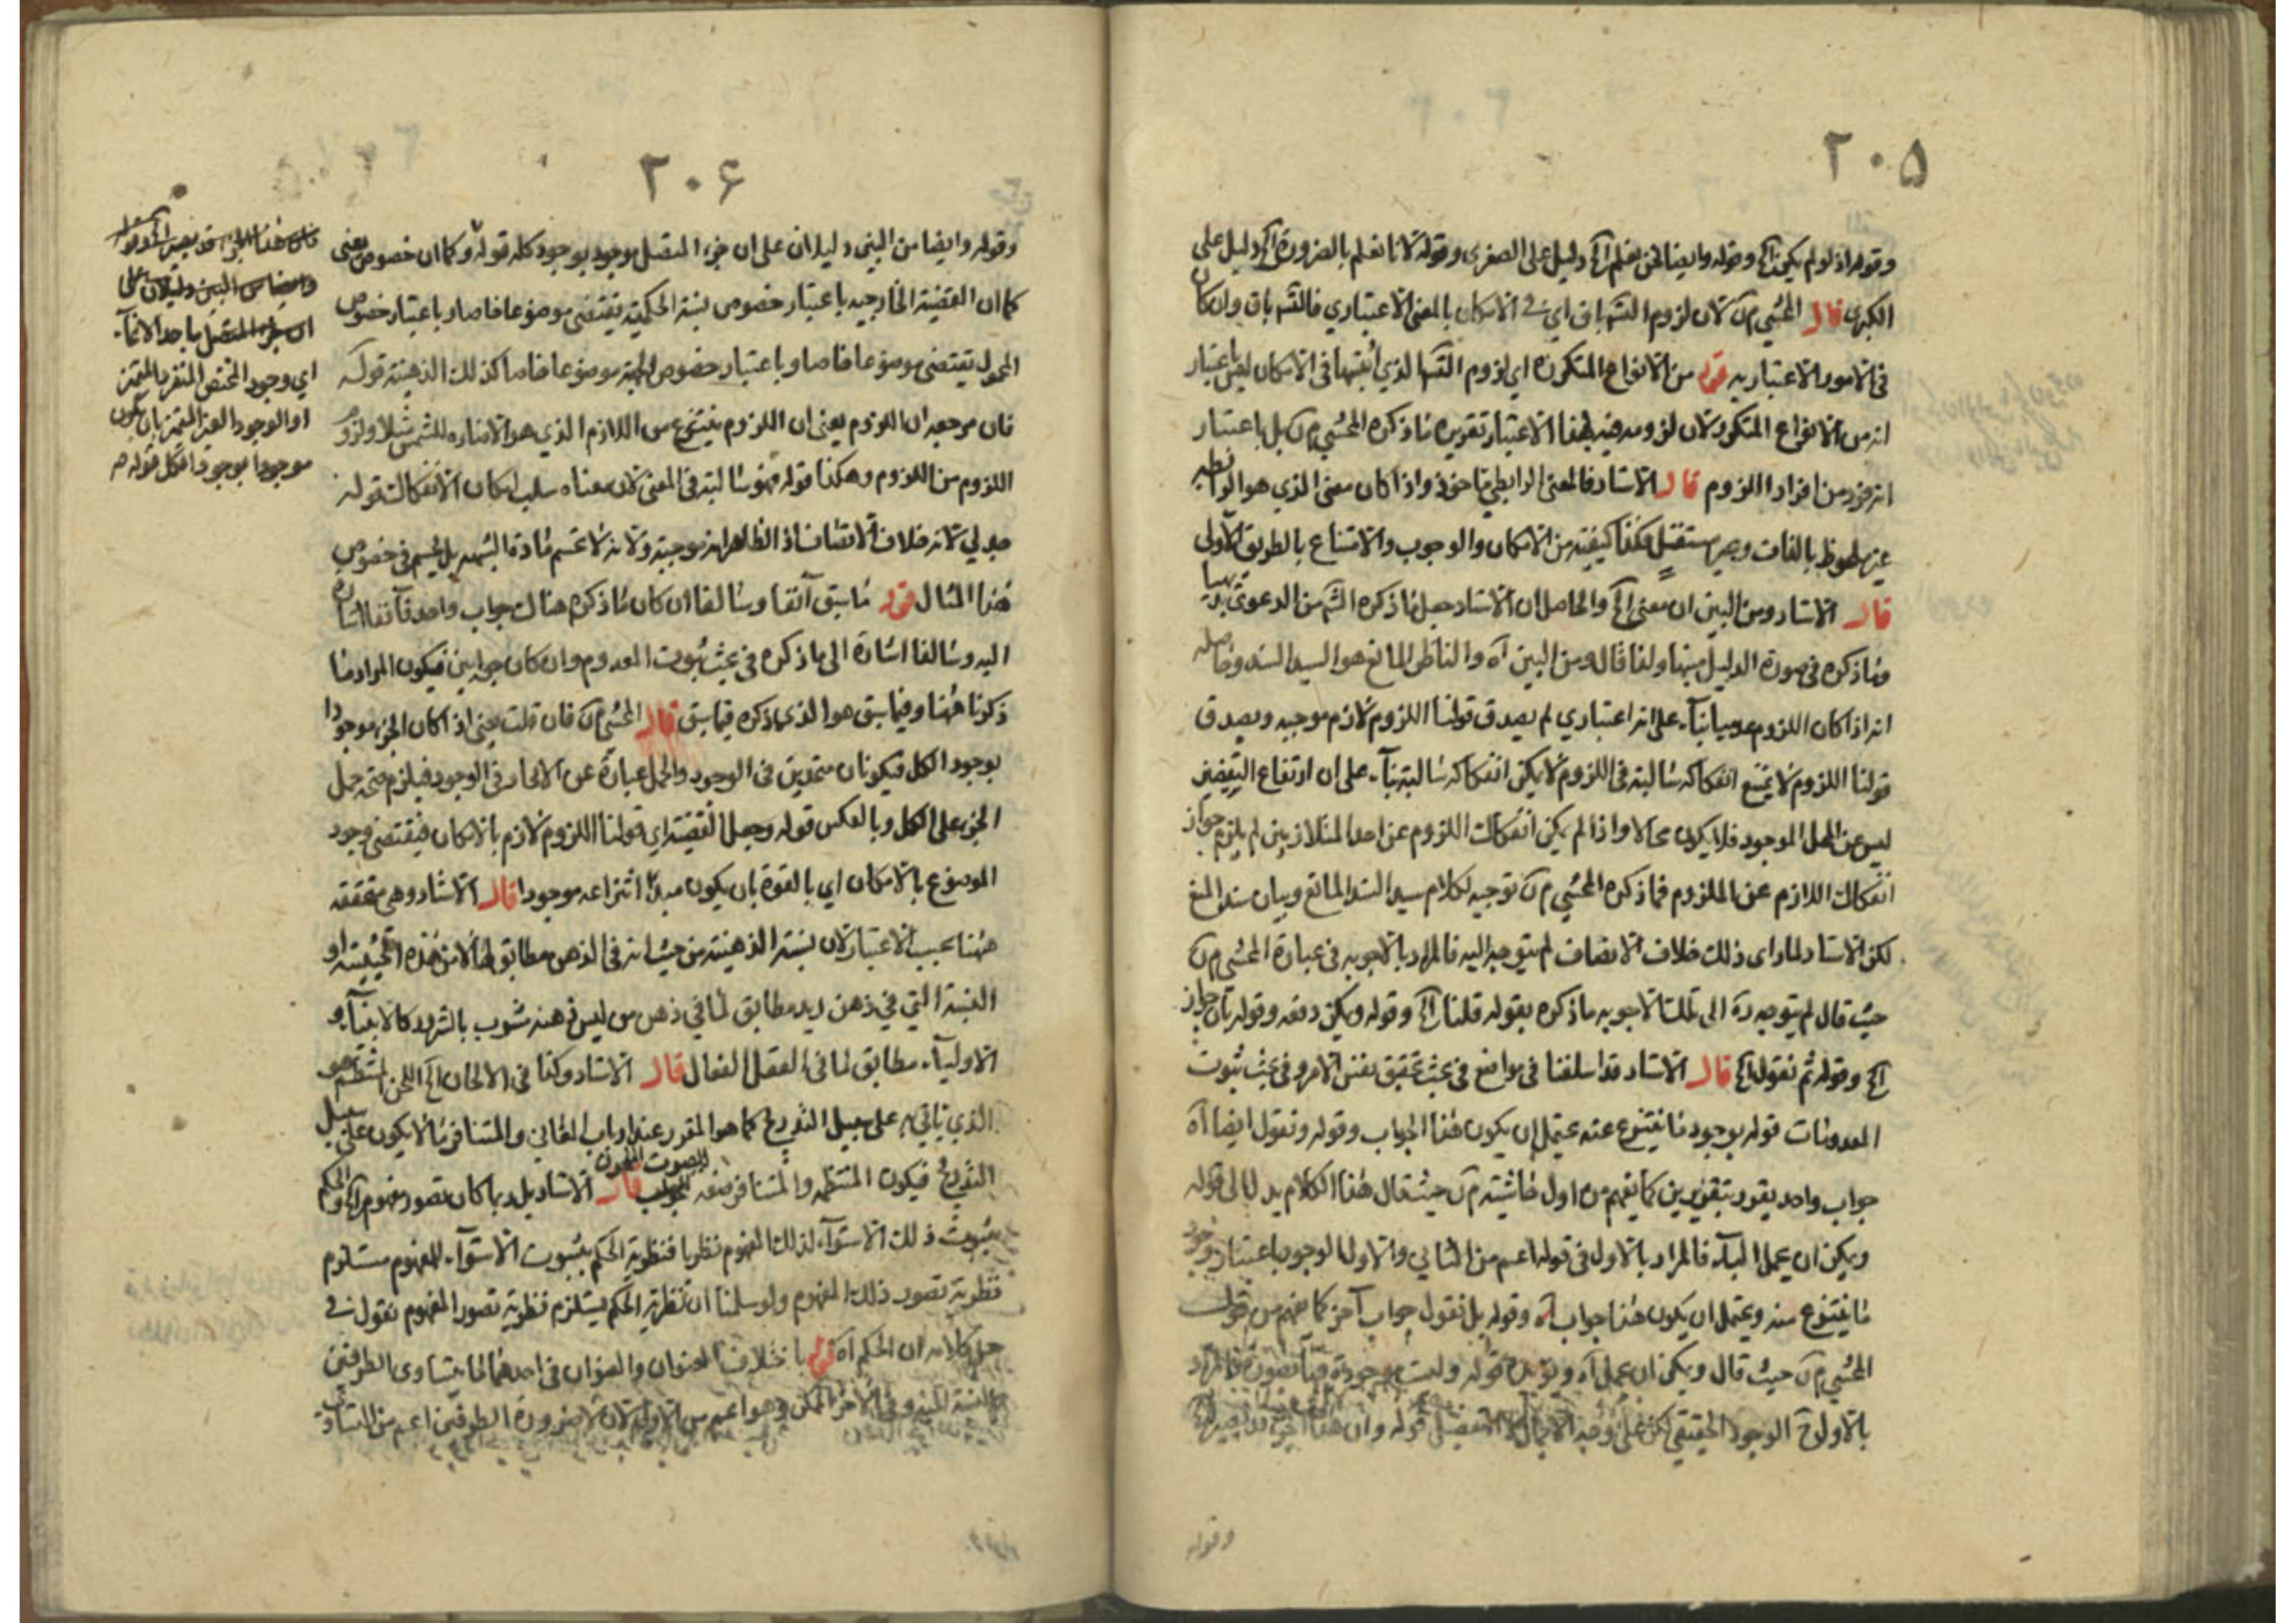 ٢٠٥
وقوله اذ لو لم يكن آه وقوله وايضا نحن نعلم آه دليل على الصغرى وقوله لانا نعلم بالضرورة آه دليل على
الكبرى قال المحشي م ن لان لزوم التسهاق اي في الامكان بالمعنى الاعتباري وان كان
في الامور الاعتباريه قوله من الانواع المتكررة اي لزوم الذي في الامكان ليس باعتبار
انه من الانواع المتكررة لان لزومه فيه بهذا الاعتبار تقريره ما ذكره المحشي م ن بل باعتبار
انه فرد من افراد اللزوم قال الاستاد فالمعنى الرابطي ماخوذ واذا كان معنى الذي هو الرابطه
غير ملحوظ بالذات وغير مستقل فكذا كيفيته من الامكان والوجوب والامتناع بالطريق الاولى
قال الاستاد ومن البين ان معنى آه والحاصل ان الاستاد جعل ما ذكره السيد من الدعوى بديهيا
وما ذكره في صورة الدليل تنبيها ولذا قال ومن البين آه والناظر المانع هو السيد السند وحاصله
انه اذا كان اللزوم عدميا بناء على انه اعتباري لم يصدق قولنا اللزوم لازم موجبه ويصدق
قولنا اللزوم لا يمتنع انفكاكه سالبة في اللزوم لا يمكن انفكاكه سالبة بناء على ان ارتفاع النقيضين
ليس عن المحل الموجود فلا يكون محالا واذا لم يكن انفكاك اللزوم عن احد المتلازمين لم يلزم جواز
انفكاك اللازم عن الملزوم فما ذكره المحشي م ن توجيه لكلام سيد السند المانع وبيان سند المنع
لكن الاستاد لما راى ذلك خلاف الانصاف لم يتوجه اليه فالمراد بالاجوبه في عبارة المحشي م ن
حيث قال لم يتوجه رده الى تلك الاجوبه ما ذكره بقوله قلنا آه وقوله ويمكن دفعه وقوله بان جواز
آه وقوله ثم نقول آه قال الاستاد قد اسلفنا في مواضع في بحث تحقيق نفس الامر وفي بحث ثبوت
المعدومات قوله بوجود ما ينتزع عنه يحتمل ان يكون هذا الجواب وقوله ونقول ايضا آه
جواب واحد يقرر بتقريرين كما يفهم من اول حاشيته م ن حيث قال هذا الكلام يدل الى قوله
ويمكن ان يحمل فالمراد بالاول في قوله اعم من الثاني والاول الوجود باعتبار وجود
ما ينتزع منه ويحتمل ان يكون هذا جواب آه وقوله بل نقول جواب آخر كما يفهم من قول
المحشي م ن حيث قال ويمكن ان يحمل آه ويؤيده قوله وليست موجودة فالمراد
بالاول الوجود الحقيقي لكن على وجه الاجمال لا التفصيل قوله وان هذا الجزء
وقوله
٢٠۶
وقوله وايضا من البين دليلان على ان جزء المتصل موجود بوجود كله قوله وكما ان خصوص يعني
كما ان القضية الخارجيه باعتبار خصوص نسبته الحكمية تقتضي موضوعا خاصا وباعتبار خصوص
المحمول يقتضي موضوعا خاصا وباعتبار خصوص الجهة موضوعا خاصا كذلك الذهنية قوله
فان مرجعه ان اللزوم يعني ان اللزوم ينتزع من اللازم الذي هو الاضاره للشمس مثلا ولزوم
اللزوم من اللزوم وهكذا قوله فهو سالبة في المعنى لان معناه سلب امكان الانفكاك قوله
جدلي لانه خلاف الانصاف اذ الظاهر انه موجبة ولانه لا يحسم مادة الشبهه بل يحسم في خصوص
هذا المثال قوله ما سبق آنفا وسالفا ان كان ما ذكره هناك جواب واحد فآنفا اشارة
اليه وسالفا اشارة الى ما ذكره في بحث ثبوت المعدوم وان كان جوابين فيكون المراد ما
ذكرنا ههنا وفيما سبق هو الذي ما ذكره فيما سبق قال المحشي م ن فان قلت يعني اذا كان الجزء موجودا
بوجود الكل فيكونان متحدين في الوجود والحمل عبارة عن الاتحاد في الوجود فيلزم صحة حمل
الجزء على الكل وبالعكس قوله وجعل القضية اي قولنا اللزوم لازم بالامكان فيقتضي وجود
الموضوع بالامكان اي بالقوة بان يكون مبدأ انتزاعه موجودا قال الاستاد وهي متحققه
ههنا بحسب الاعتبار لان نسبته الذهنية من حيث انه في الذهن مطابق لها لا من هذه الحيثية او
النسبة التي في ذهن زيد مطابق لما في ذهن من ليس ذهنه مشوب بالشوائب كالانبياء و
الاولياء مطابق لما في العقل الفعال قال الاستاد وكذا في الالحان آه اللحن المنتظم هو
الذي ياتي به على سبيل التدريج كما هو المقرر عند ارباب الاغاني والمتنافر ما لا يكون على سبيل
التدريج فيكون المنتظم والمتنافر صفه الصوت اللحن قال الاستاد بل ربما كان تصور مفهوم آه والحكم
بثبوت ذلك الاستواء لذلك المفهوم نظريا فنظرية الحكم بثبوت الاستواء للمفهوم مستلزم
نظرية تصور ذلك المفهوم ولو سلمنا ان نظرية الحكم يستلزم نظرية تصور المفهوم نقول في
حل كلامه ان الحكم آه قوله باختلاف العنوان والعنوان في احدهما ما يتساوى الطرفين
بالنسبة اليه وفي الآخر الممكن وهو اعم من الاول لان لا ضرورة الطرفين اعم من التساوي
فان هذا الجزء قد يصير
وايضا من البين دليلان على
ان جزء المتصل باحد الانحاء
اي وجود المختص المنفرد المتميز
او الوجود الغير المتميز بان يكون
موجودا بوجود الكل قوله صه